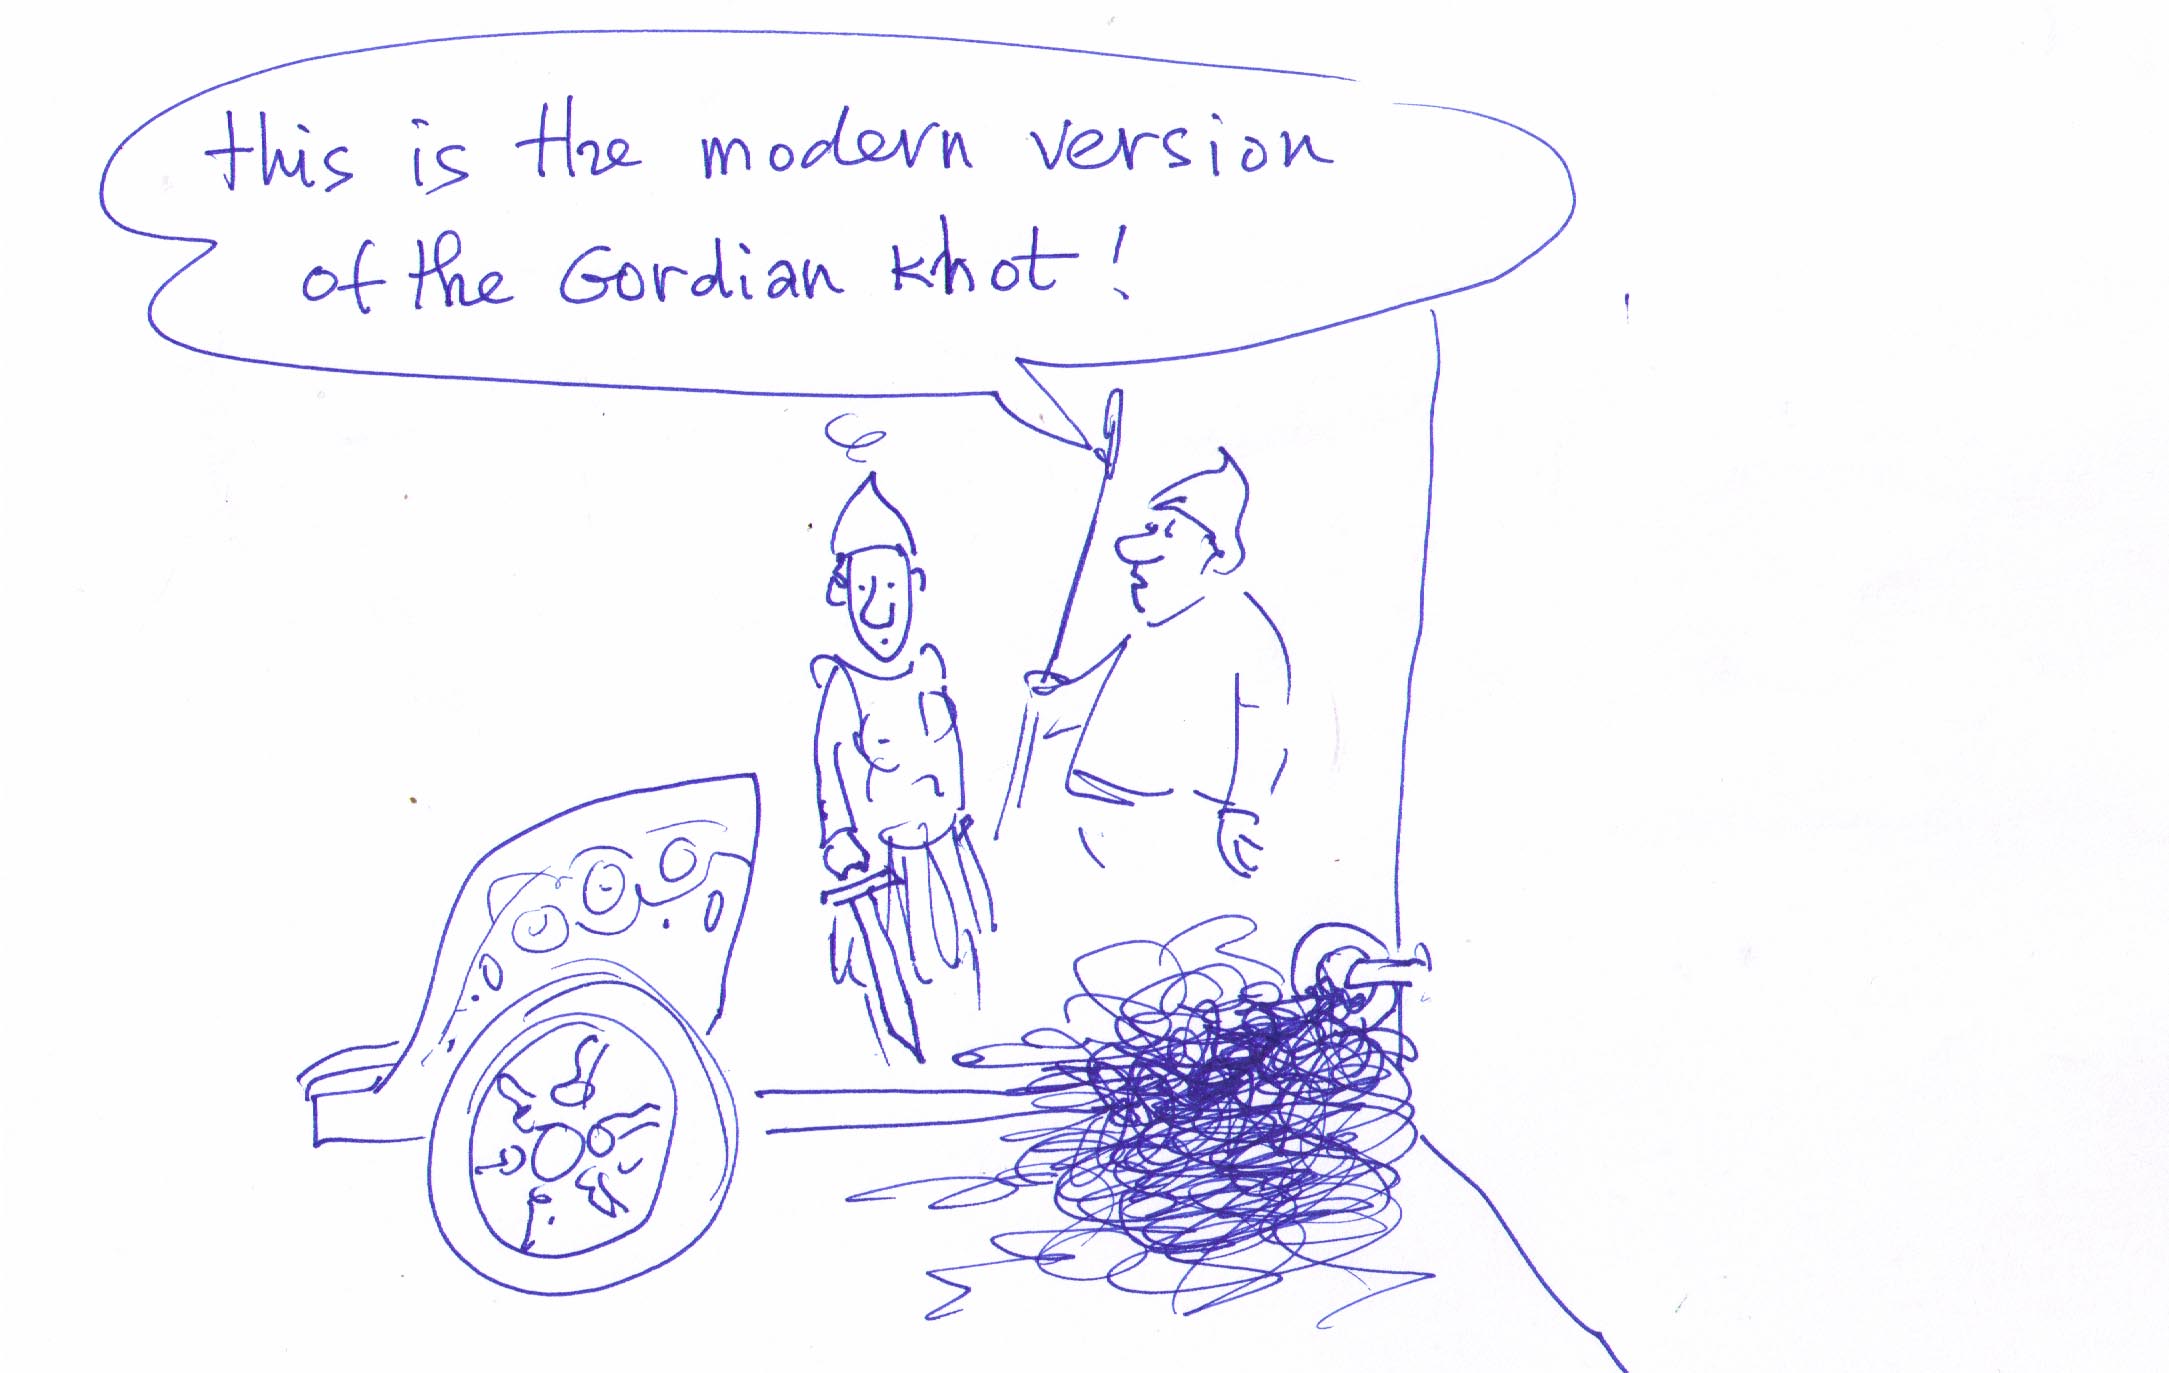 this is the modern version
of the Gordian knot!